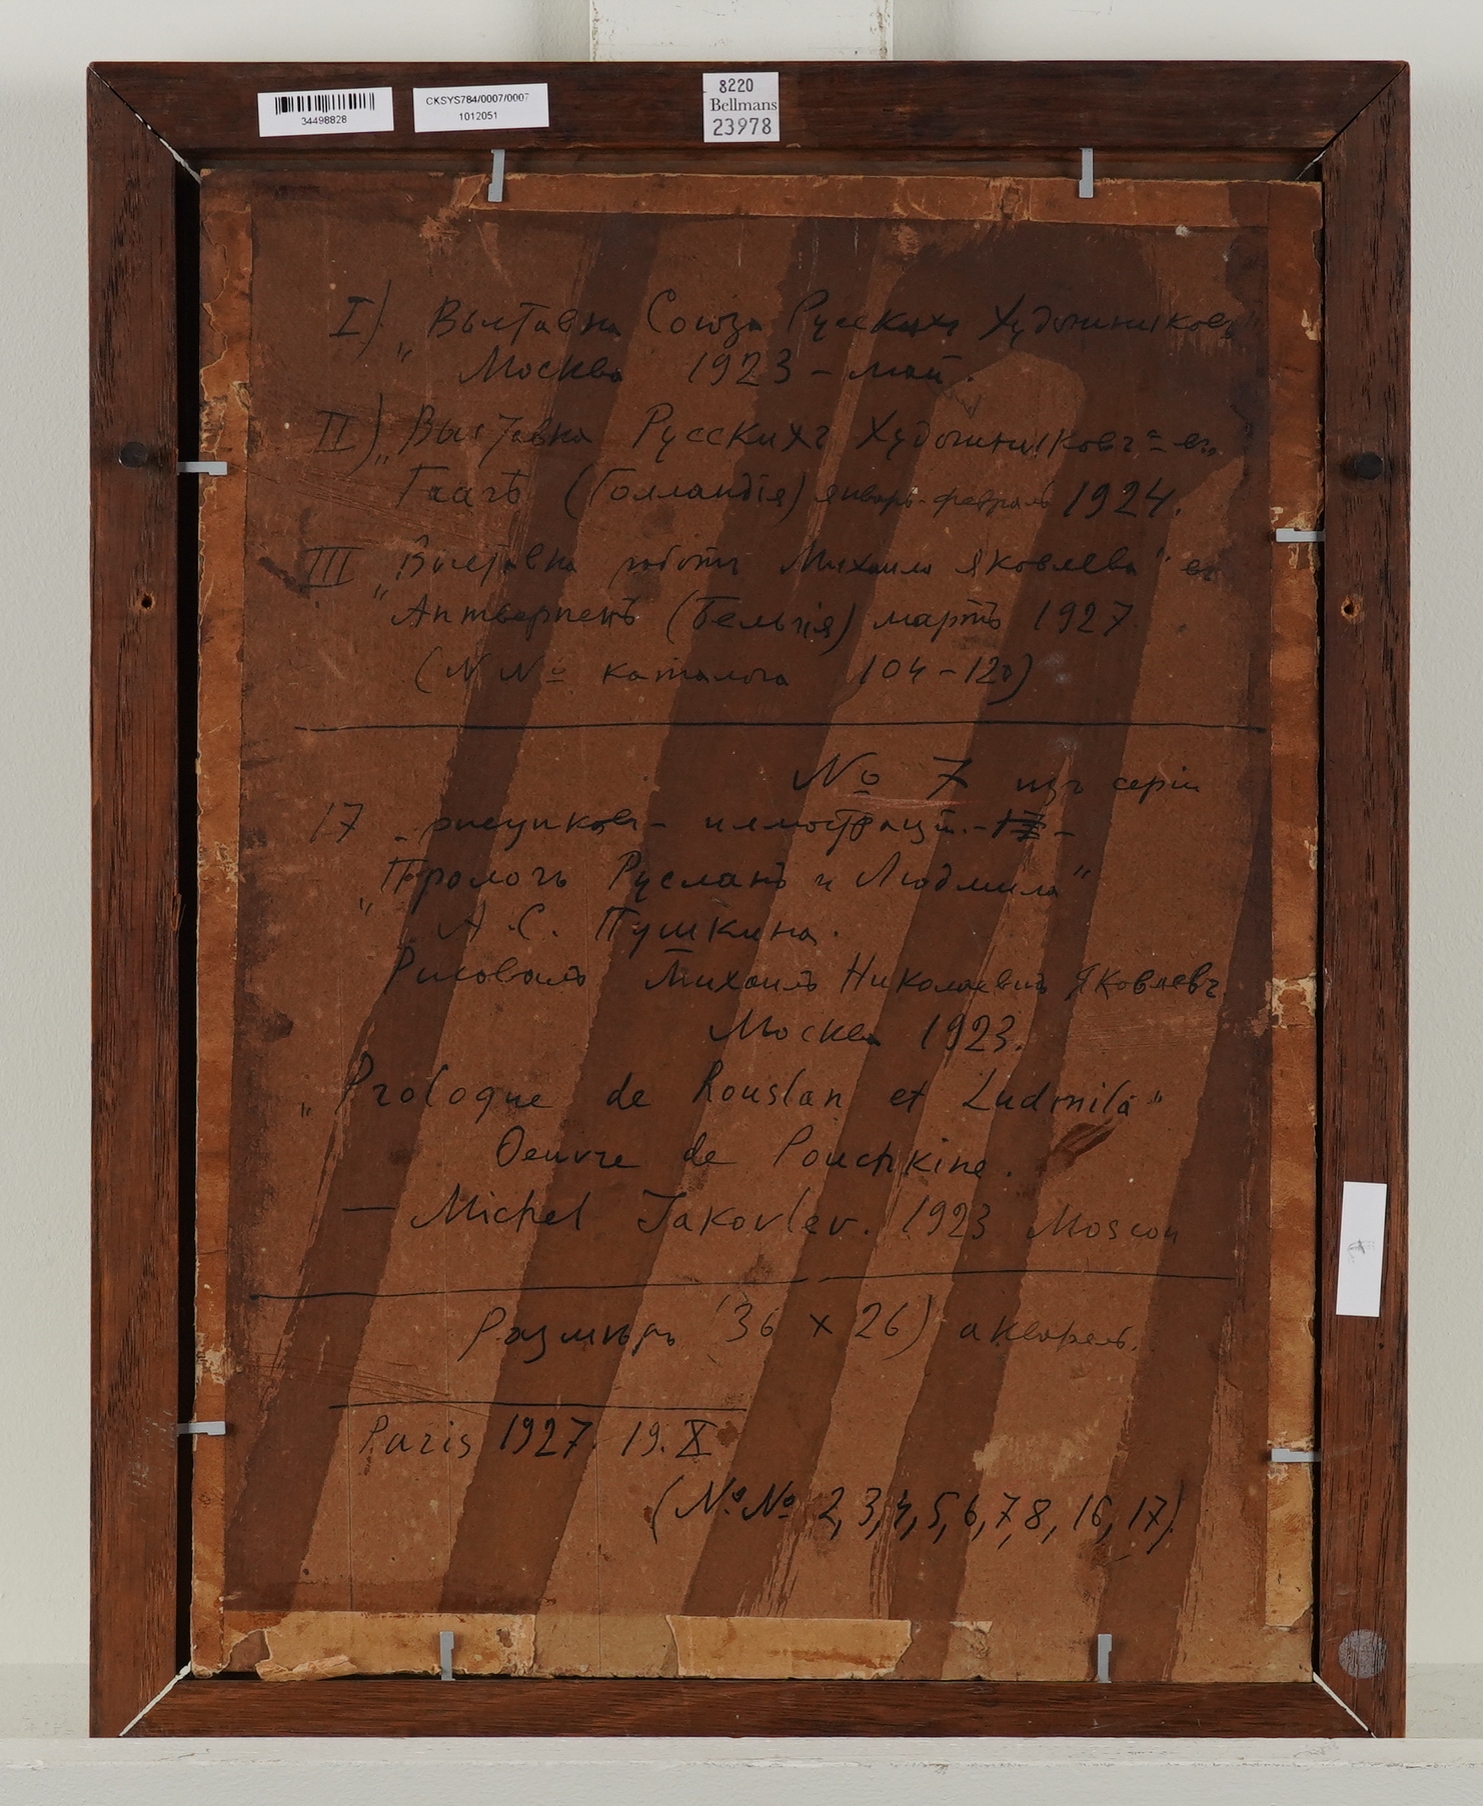 34498828
CKSYS784/0007/0007
1012051
8220
Bellmans
23978
I) „Выставка Союза Русскихъ Художниковъ"
Москва 1923 - май.
II) „Выставка Русскихъ Художниковъ" въ
Гаагѣ (Голландія) январь-февраль 1924.
III „Выставка работъ Михаила Яковлева" въ
Антверпенѣ (Бельгія) мартъ 1927
(N Nº каталога 104-120)
№ 7 изъ серіи
17 - рисунковъ - иллюстрацій. -
„Прологъ Русланъ и Людмила"
А.С. Пушкина.
Рисовалъ Михаилъ Николаевичъ Яковлевъ
Москва 1923.
„Prologue de Rouslan et Ludmila"
Oeuvre de Pouchkine.
— Michel Jakovlev. 1923 Moscou
Размѣръ (36 x 26) акварель.
Paris 1927. 19. X
(№№ 2, 3, 4, 5, 6, 7, 8, 16, 17)